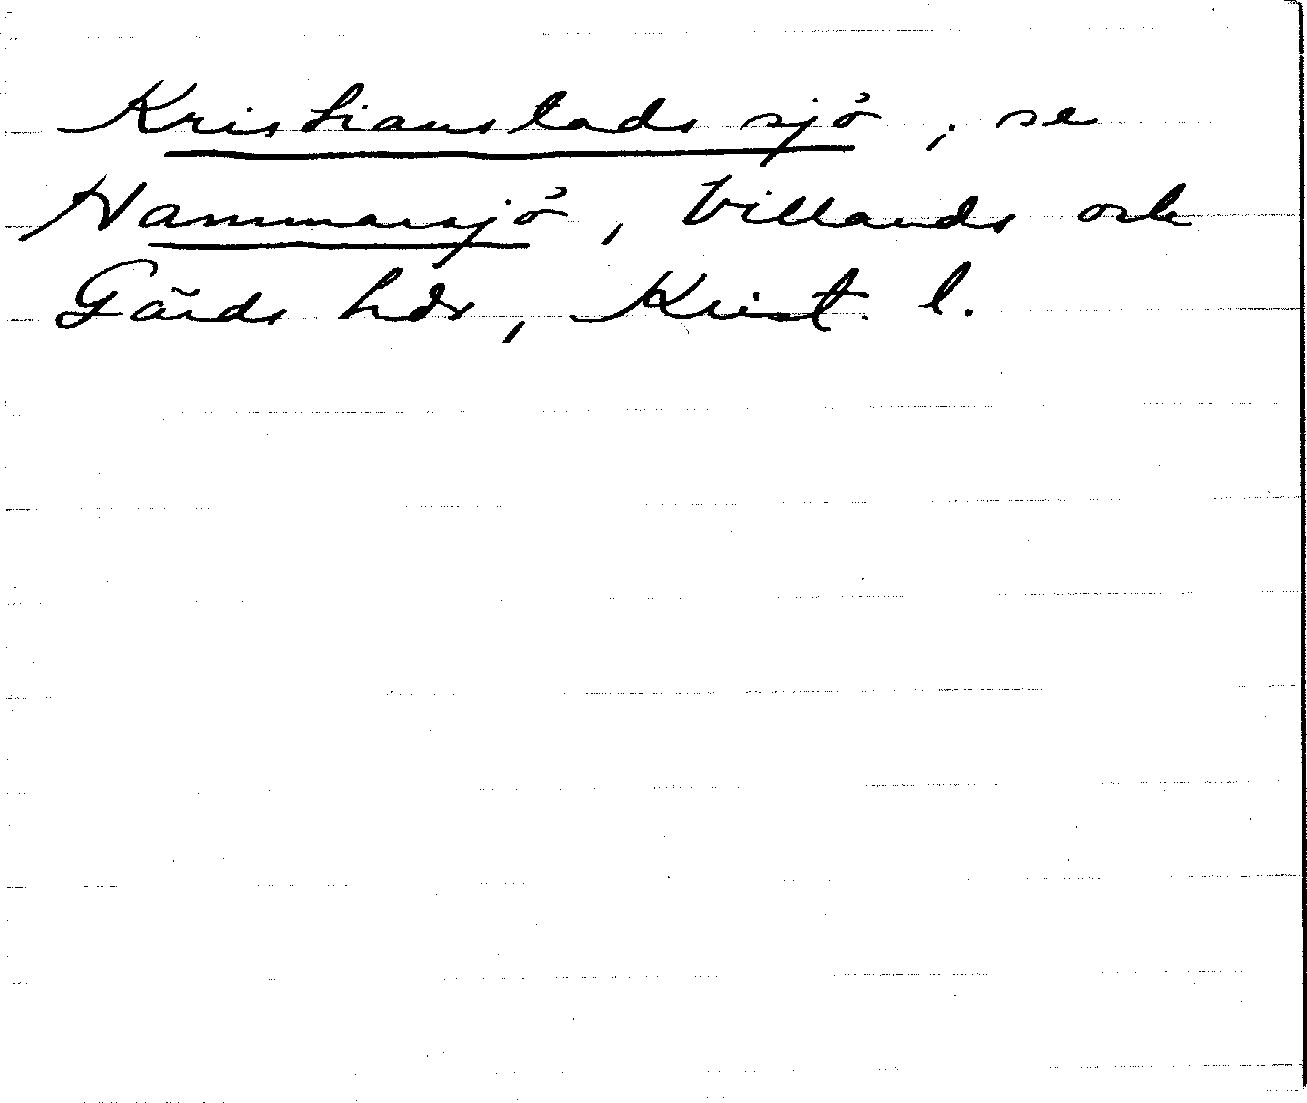 Kristianstads sjö, se
Hammarsjö, Villands och
Gärds hdr, Krist. l.